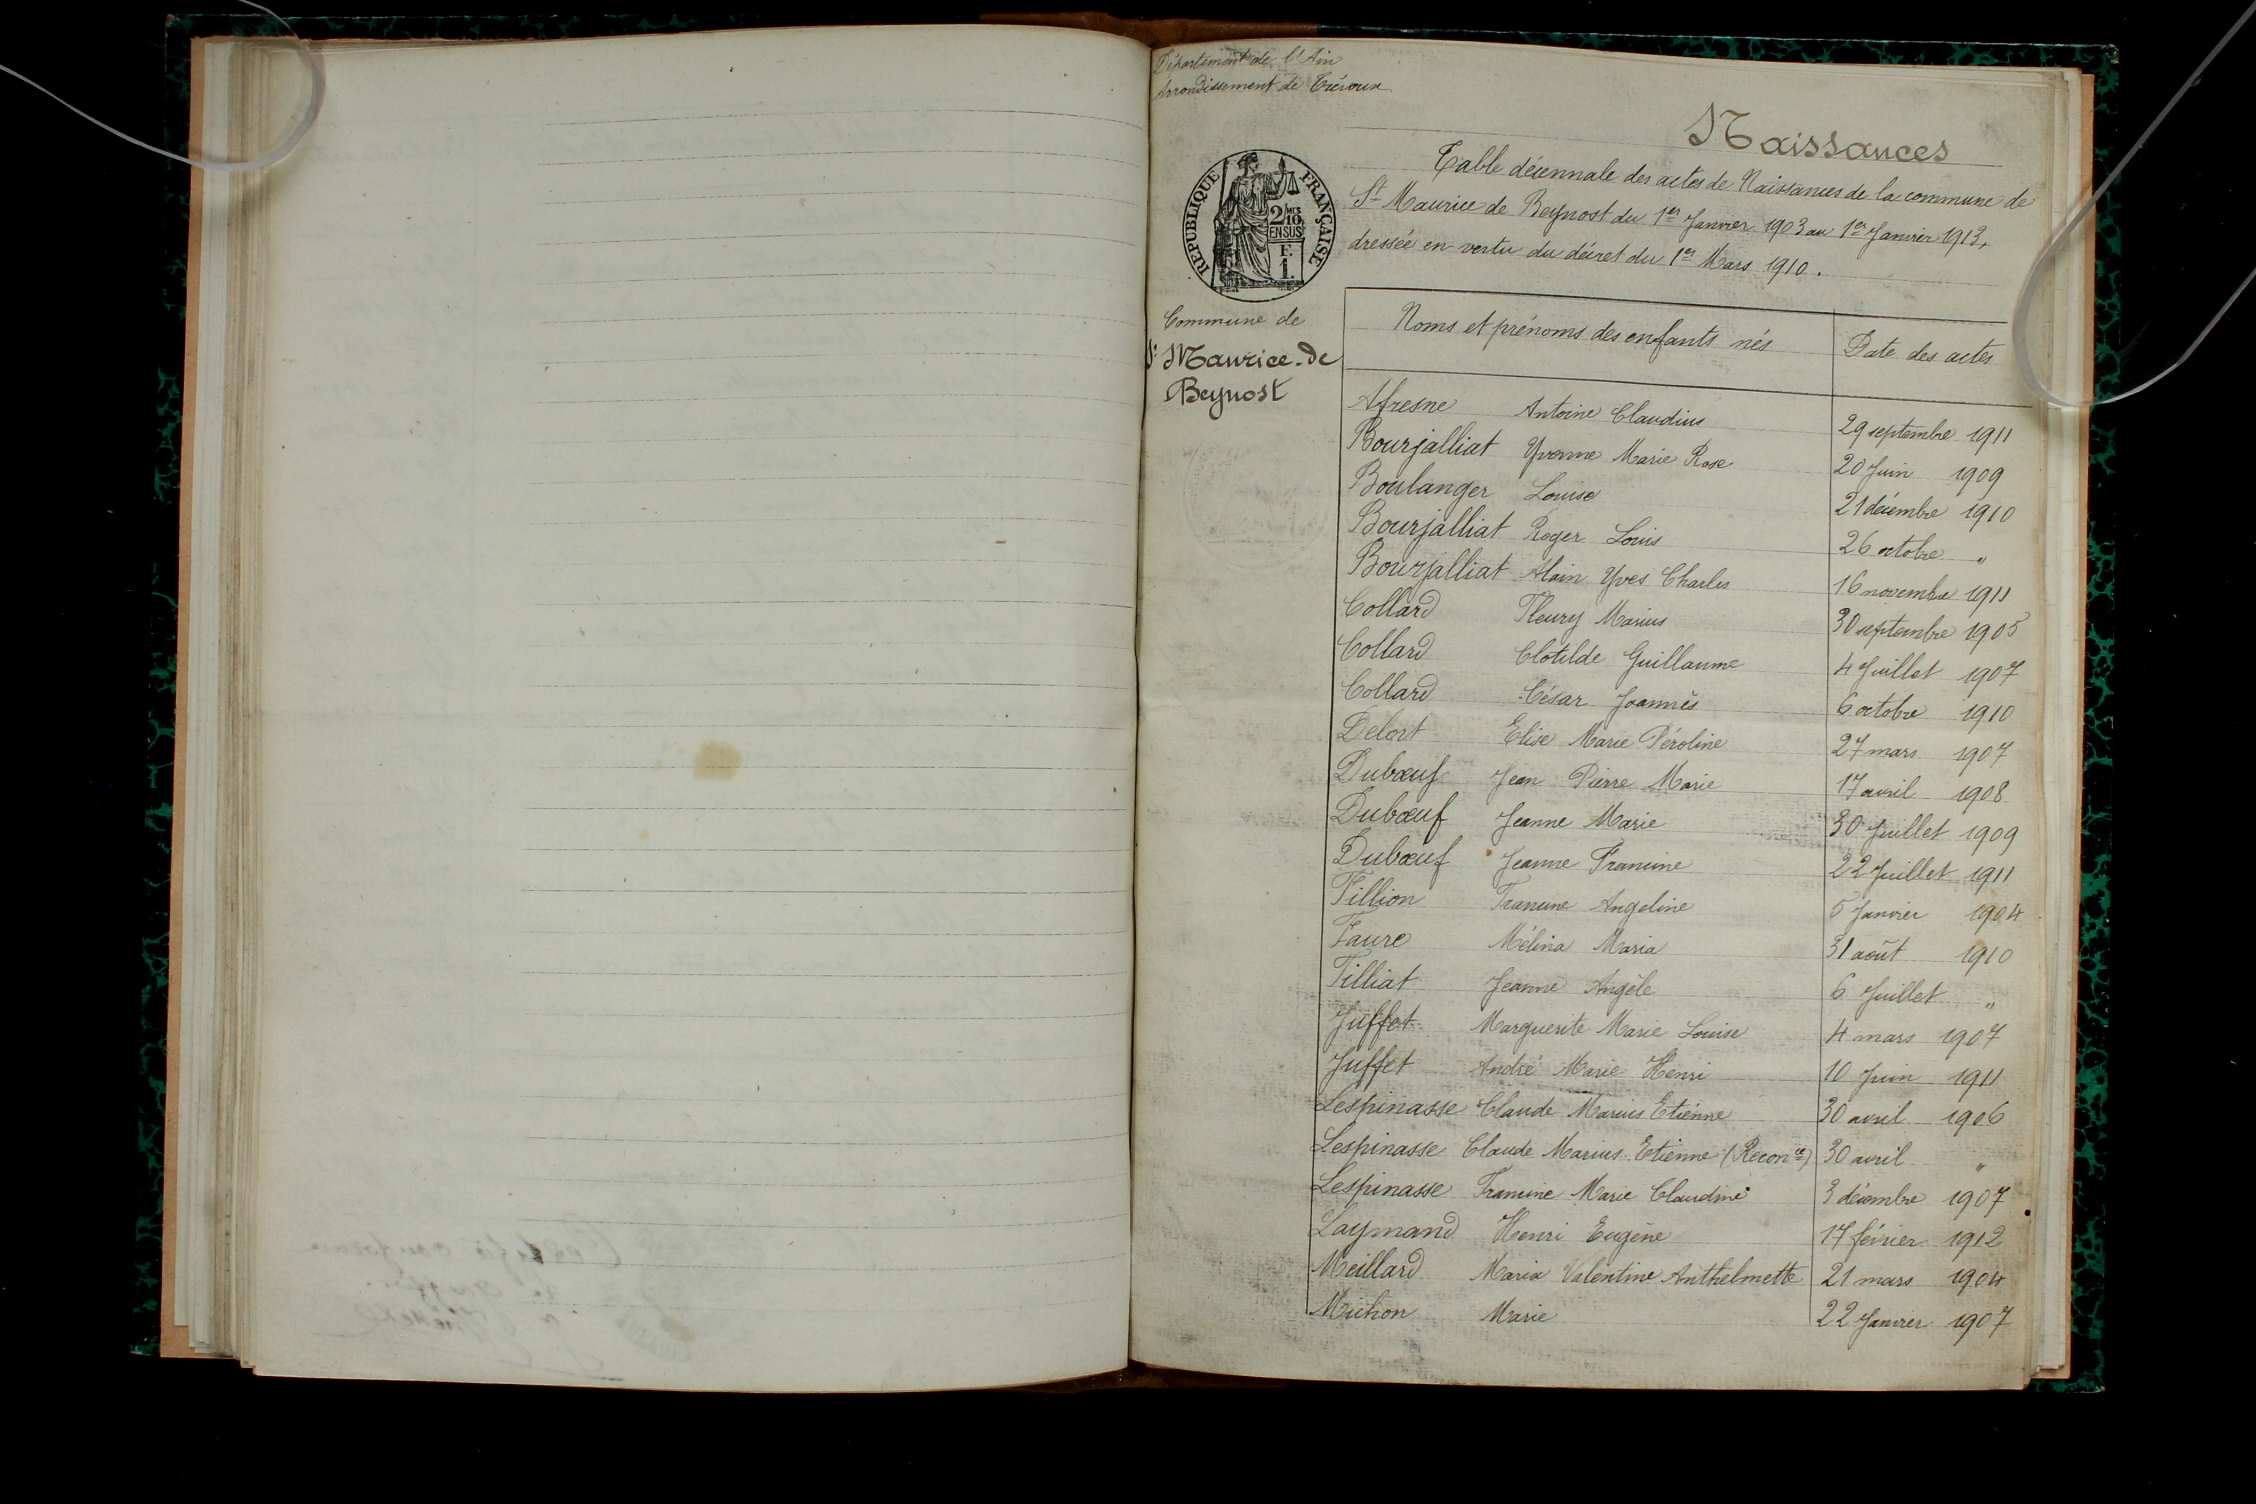 Département de l'Ain
Arrondissement de Trévoux
Naissances
Table décennale des actes de Naissances de la commune de
St Maurice de Beynost du 1er Janvier 1903 au 1er Janvier 1913,
dressée en vertu du décret du 1er Mars 1910.
RÉPUBLIQUE FRANÇAISE
2/10 MES
EN SUS
F.
1.
Commune de
St Maurice-de
Beynost
Noms et prénoms des enfants nés Date des actes
Afresne Antoine Claudius 29 septembre 1911
Bourjalliat Yvonne Marie Rose 20 Juin 1909
Boulanger Louise 21 décembre 1910
Bourjalliat Roger Louis 26 octobre "
Bourjalliat Alain Yves Charles 16 novembre 1911
Collard Fleury Marius 30 septembre 1905
Collard Clotilde Guillaume 4 Juillet 1907
Collard César Joannès 6 octobre 1910
Delort Elise Marie Péroline 27 mars 1907
Dubœuf Jean Pierre Marie 17 avril 1908
Dubœuf Jeanne Marie 30 Juillet 1909
Dubœuf Jeanne Francine 22 Juillet 1911
Fillion Francine Angeline 5 Janvier 1904
Faure Mélina Maria 31 août 1910
Filliat Jeanne Angèle 6 Juillet "
Juffet Marguerite Marie Louise 4 mars 1907
Juffet André Marie Henri 10 Juin 1911
Lespinasse Claude Marius Etienne 30 avril 1906
Lespinasse Claude Marius Etienne (Reconce) 30 avril "
Lespinasse Francine Marie Claudine 3 décembre 1907
Laymand Henri Eugène 17 février 1912
Meillard Maria Valentine Anthelmette 21 mars 1904
Michon Marie 22 Janvier 1907